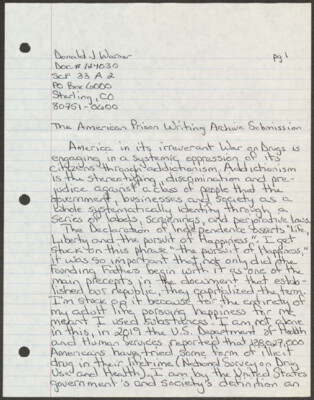 Donald J Warner pg 1
Doc# 124030
SCF 33 A 2
PO Box 6000
Sterling, CO
80751-0600
The American Prison Writing Archive Submission
America in its irreverant War on Drugs is
engaging in a systemic oppression of its
citizens through addictionism. Addictionism
is the stereotyping, discrimination and pre-
judice against a class of people that the
government, businesses and society as a
whole systematically identify through a
series of labels, screenings, and perjorative laws.
The Declaration of Independence asserts "Life,
Liberty and the pursuit of Happiness." I get
stuck on this phrase "the pursuit of Happiness,"
it was so important that not only did the
Founding Fathers begin with it as one of the
main precepts in the document that estab-
lished our republic, they capitalized the term.
I'm stuck on it because for the entirety of
my adult life pursuing happiness for me
meant I used substances. I am not alone
in this, in 2019 the U.S. Department of Health
and Human Services reported that 128,027,000
Americans have tried some form of illicit
drug in their lifetime (National Survey on Drug
Use and Health). I am by the United States
government's and society's definition an